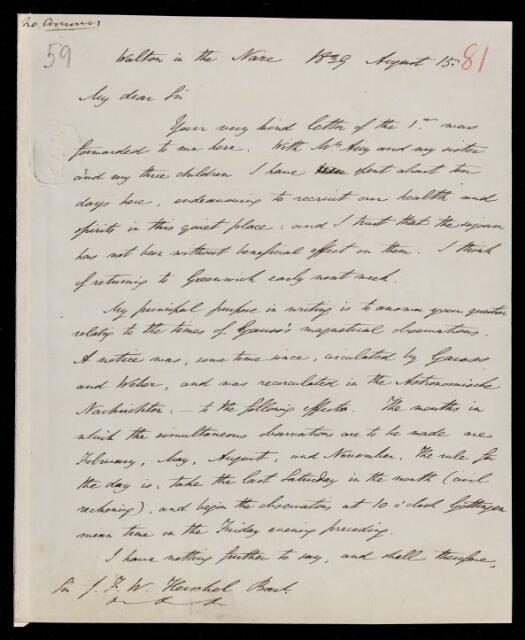 No. Answer
59
Walton in the Naze 1839 August 15
81
My dear Sir
Your very kind letter of the 1st was
forwarded to me here. With Mrs Airy and my sister
and my three children I have been spent about ten
days here, endeavouring to recruit our health and
spirits in this quiet place: and I trust that the sojourn
has not been without beneficial effect on them. I think
of returning to Greenwich early next week.
My principal purpose in writing is to answer your question
relatig to the times of Gauss's magnetical observations.
A notice was, some time since, circulated by Gauss
and Weber, and was recirculated in the Astronomische
Nachrichten, — to the following effect. The months in
which the simultaneous observations are to be made are
February, May, August, and November. The rule for
the day is, take the last Saturday in the month (civil
reckoning), and begin the observations at 10 o'clock Göttingen
mean time on the Friday evening preceding.
I have nothing further to say, and shall therefore,
Sir J. F. W. Herschel Bart.